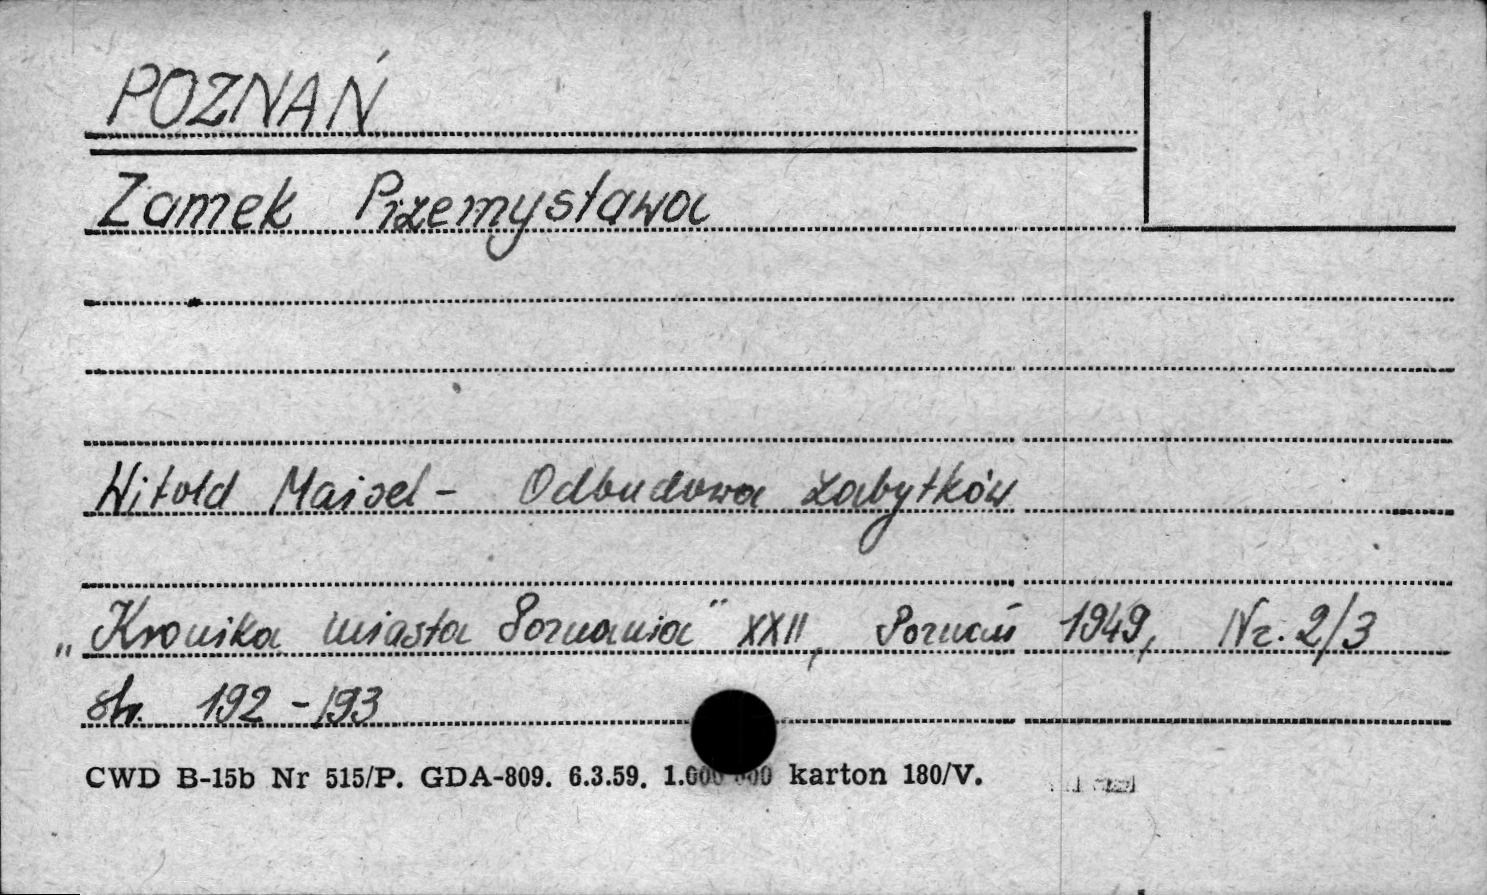 POZNAŃ
Zamek Przemysława
Witold Maisel - Odbudowa zabytków
„Kronika miasta Poznania" XXII, Poznań 1949, Nr. 2/3
str. 192-193
CWD B-15b Nr 515/P. GDA-809. 6.3.59. 1.000 000 karton 180/V.